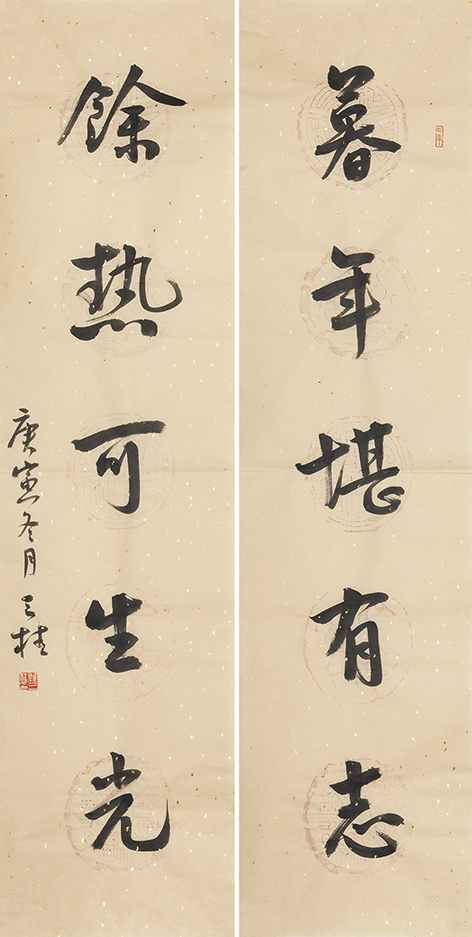 暮年堪有志
餘热可生光
庚寅冬月 天桂